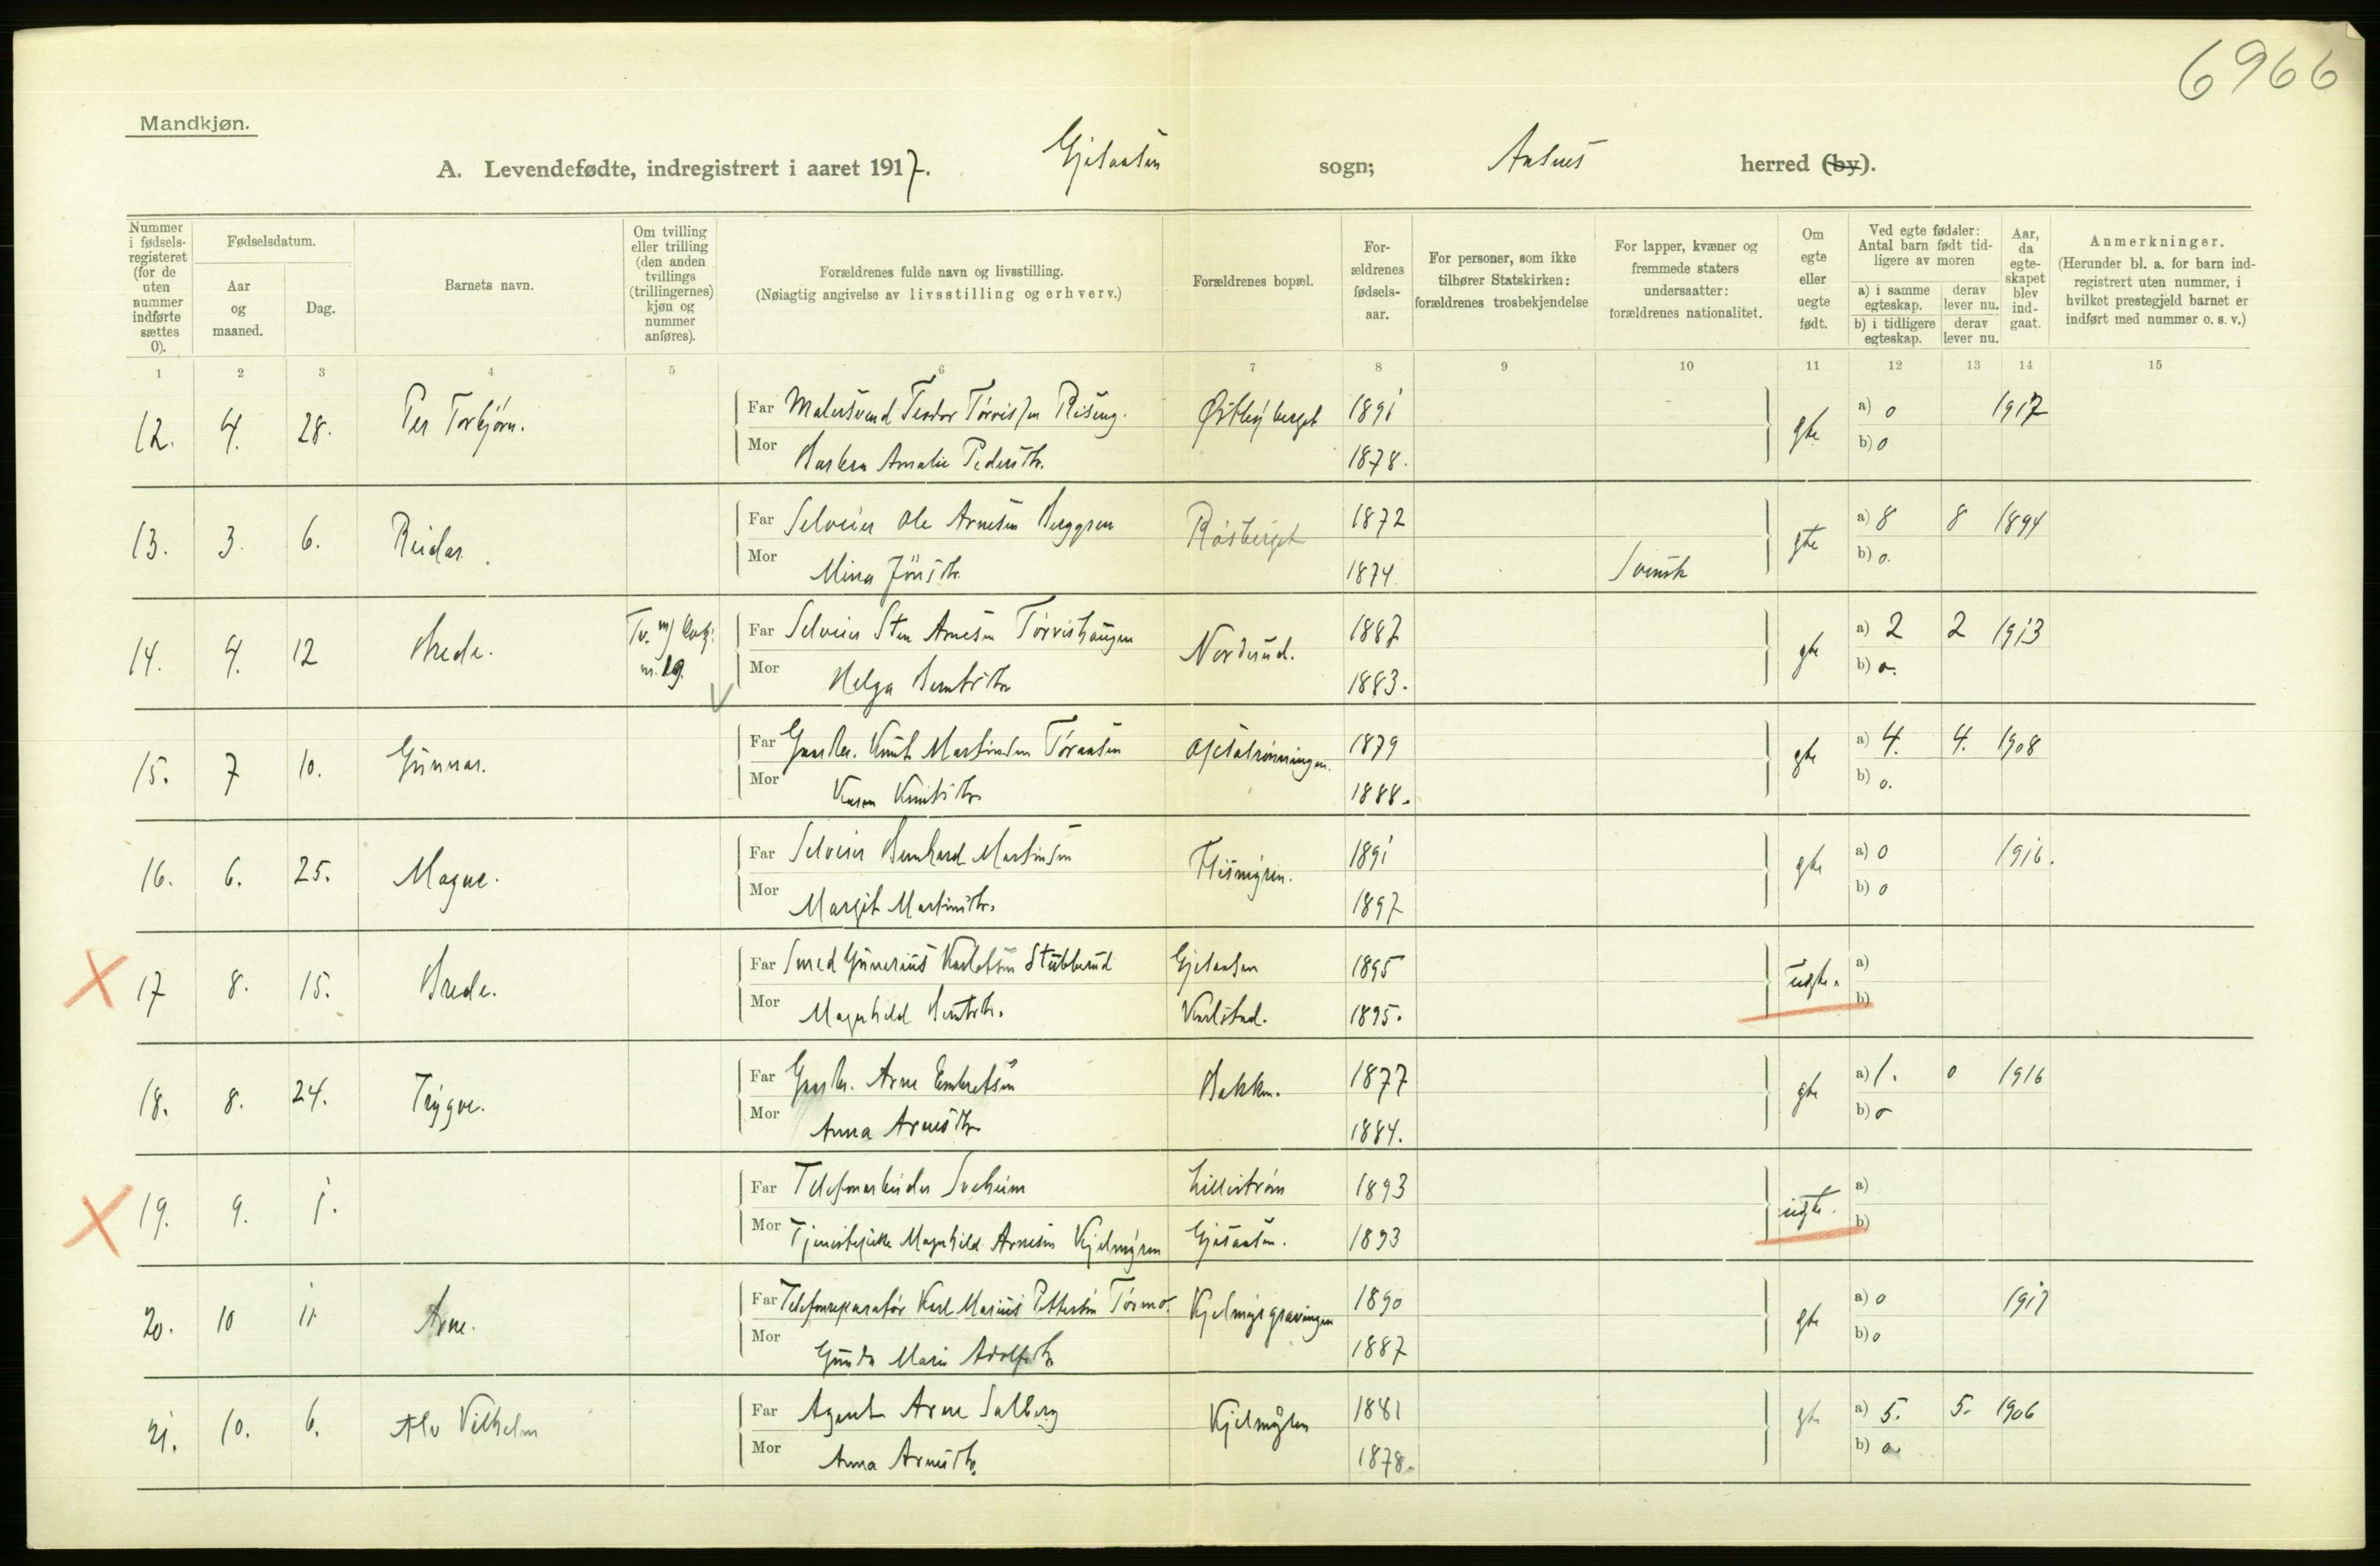 6966
Mandkjøn.
A. Levendefødte, indregistrert i aaret 1917. Gjesaasen sogn; Aasnes herred (by).
Nummer i fødsels-registeret (for de uten nummer indførte sættes 0).
Fødselsdatum.
Aar og maaned.
Dag.
Barnets navn.
Om tvilling eller trilling (den anden tvillings (trillingernes) kjøn og nummer anføres).
Forældrenes fulde navn og livsstilling.
(Nøiagtig angivelse av livsstilling og erhverv.)
Forældrenes bopæl.
For-ældrenes fødsels-aar.
For personer, som ikke tilhører Statskirken: forældrenes trosbekjendelse
For lapper, kvæner og fremmede staters undersaatter: forældrenes nationalitet.
Om egte eller uegte født.
Ved egte fødsler: Antal barn født tid-ligere av moren
a) i samme egteskap.
derav lever nu.
b) i tidligere egteskap.
derav lever nu.
Aar, da egte-skapet blev ind-gaat.
Anmerkninger.
(Herunder bl. a. for barn ind-registrert uten nummer, i hvilket prestegjeld barnet er indført med nummer o. s. v.)
1 2 3 4 5 6 7 8 9 10 11 12 13 14 15
12. 4. 28. Per Torbjørn. Far Malersvend Teodor Rising. Østbyberget 1891 gte a) 0 1917
Mor Barbra Amalie Pedersdtr. 1878. b) 0
13. 3. 6. Reidar. Far Selveier Ole Arnesen Berggren Råsberget 1872 gte a) 8 8 1894
Mor Mina Jönsdtr. 1874. Svensk b) 0.
14. 4. 12 Brede. Tv. m) Far Selveier Sten Arnesen Tørvishaugen Norderud. 1887 gte a) 2 2 1913
Mor Helga Berntsdtr. 1883. b) 0.
15. 7 10. Gunnar. Far Gaardbr. Knut Martinsen Toraasen 1879 gte a) 4. 4. 1908
Mor Karen Knutsdtr. 1888. b) 0.
16. 6. 25. Magne. Far Selveier Bernhard Martinsen Flismyren. 1891 gte a) 0 1916.
Mor Margit Martinsdtr. 1897 b) 0
17 8. 15. Brede. Far Smed Gunerius Karlotsen Stubberud Gjesaasen 1895 uegte. a)
Mor Magnhild Berntsdtr. Karlstad. 1895. b)
18. 8. 24. Trygve. Far Gaardbr. Arne Embretsen Bakken. 1877 gte a) 1. 0 1916
Mor Anna Arnesdtr. 1884. b) 0
19. 9. 1. Far Telefonarbeider Solheim Lillestrøm 1893 uegte. a)
Mor Tjenestepike Magnhild Arnesen Kjelmyren Gjesaasen. 1893 b)
20. 10 11. Arne. Far Telefonreparatør Karl Marius Pettersen Tørmo. Kjelmyrgravingen 1890 gte a) 0 1917
Mor Gunda Marie Adolfsdtr. 1887 b) 0
21. 10. 6. Alv Vilhelm Far Agent Arne Salberg Kjelmyren 1881 gte a) 5. 5. 1906
Mor Anna Arnesdtr. 1878. b) 0.